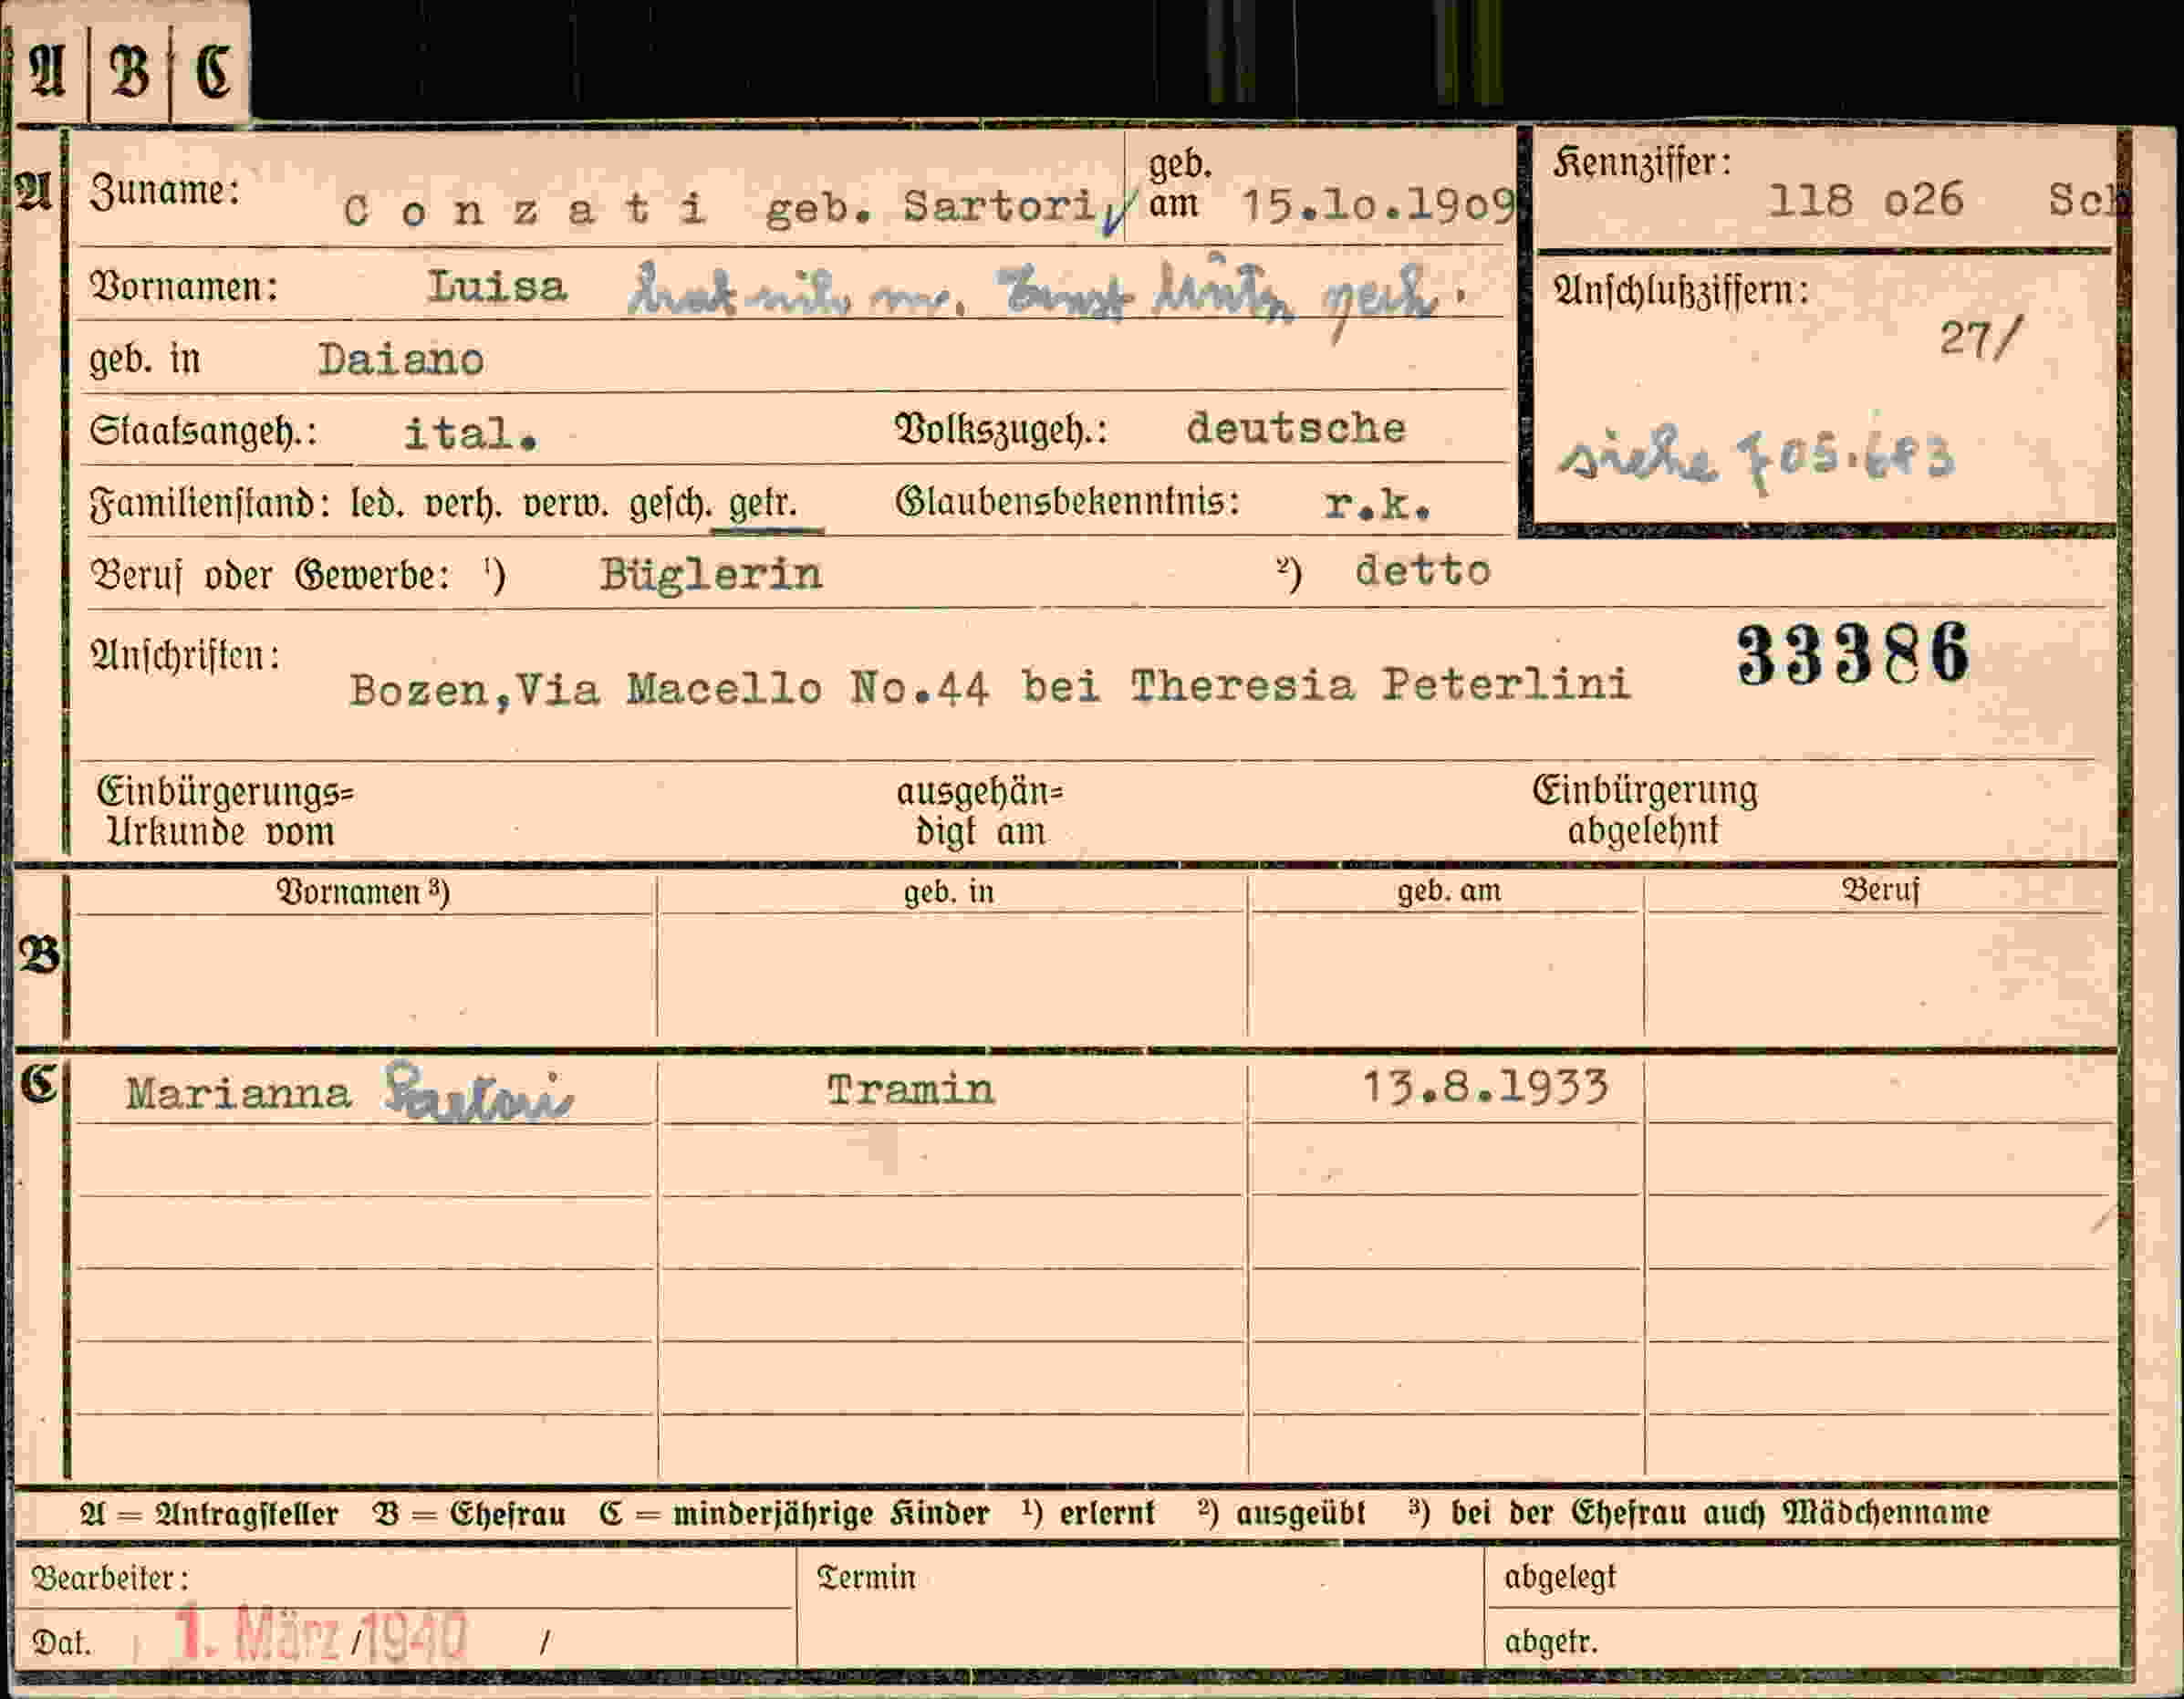 A B C
A Zuname: Conzati geb. Sartori, geb. am 15.1o.19o9
Kennziffer: 118 o26 Sch
Vornamen: Luisa hat sich m. Ernst gesch.
Anschlußziffern: 27/
geb. in Daiano
Staatsangeh.: ital. Volkszugeh.: deutsche
siehe 705.683
Familienstand: led. verh. verw. gesch. getr. Glaubensbekenntnis: r.k.
Beruf oder Gewerbe: ¹) Büglerin ²) detto
Anschriften: 33386
Bozen,Via Macello No.44 bei Theresia Peterlini
Einbürgerungs= ausgehän= Einbürgerung
Urkunde vom digt am abgelehnt
Vornamen ³) geb. in geb. am Beruf
B
C Marianna Sartori Tramin 13.8.1933
A = Antragsteller B = Ehefrau C = minderjährige Kinder ¹) erlernt ²) ausgeübt ³) bei der Ehefrau auch Mädchenname
Bearbeiter: Termin abgelegt
Dat. 1. März 1940 / / abgetr.